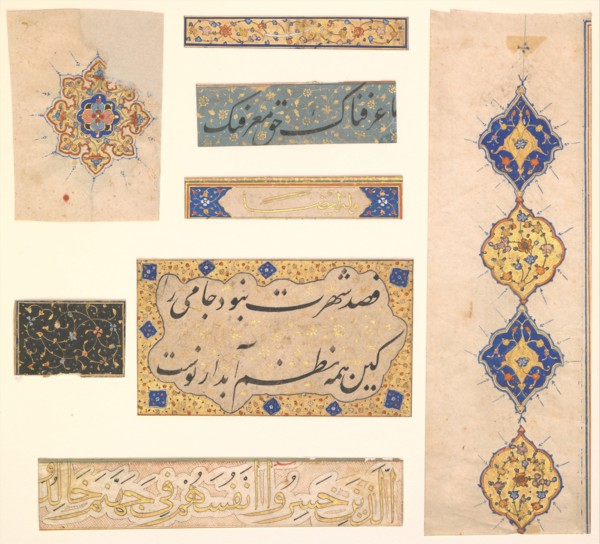 ما عرفناک حق معرفتک
قصد شهرت نبود جامی را
کین همه نظم آبدار نوشت
الَّذِينَ خَسِرُوا أَنْفُسَهُمْ فِي جَهَنَّمَ خَالِدُو